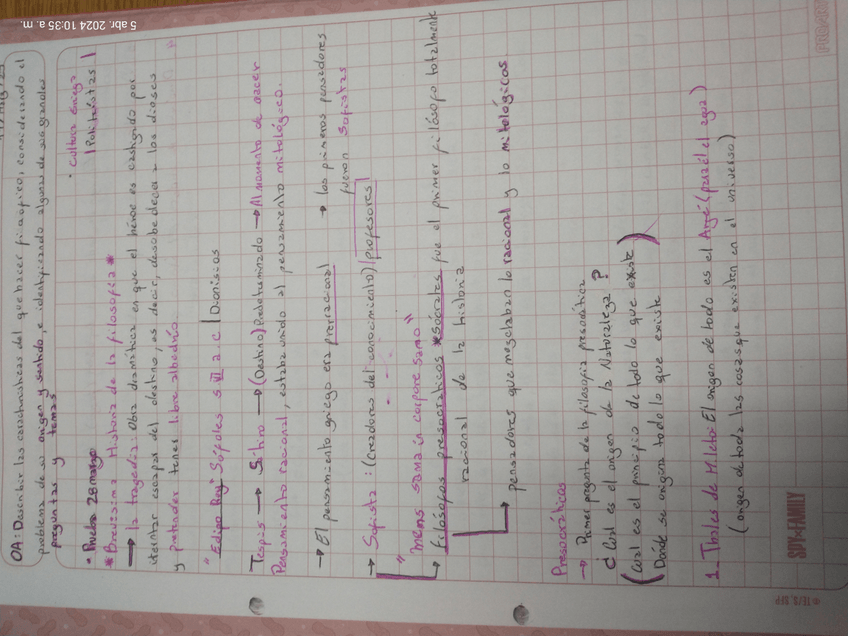 5 abr. 2024 10:35 a. m.
OA: Describir las características del que hacer filosófico, considerando el
problema de su origen y sentido, e identificando algunas de sus grandes
preguntas y temas
• Prueba 28 marzo
• Cultura Griega
| Politeístas |
* Brevísima Historia de la filosofía *
→ la tragedia: Obra dramática en que el héroe es castigado por
intentar escapar del destino, es decir, desobedecer a los dioses
y pretender tener libre albedrío.
"Edipo Rey" Sófoles s VI a.c | Dionisios
Tespis → Sátiro → (Destino) Predeterminado → Al momento de nacer
Pensamiento racional, estaba unido al pensamiento mitológico.
→ El pensamiento griego era prerracional
→ los primeros pensadores
fueron Sofistas
→ Sofista: (Creadores del conocimiento) | profesores |
"Mems sama in corpore samo"
→ filosofos presocráticos *sócrates fue el primer filósofo totalmente
racional de la historia
→ pensadores que mezclaban lo racional y lo mitológicos
Presocráticos
→ Primer pregunta de la filosofía presocrática
¿Cual es el origen de la Naturaleza?
(Cual es el principio de todo lo que existe)
Donde se origina todo lo que existe
1- Thales de Mileto: El origen de todo es el Arjé (para él el agua)
(origen de toda las cosas que existen en el universo)
SPY×FAMILY
PROARTE